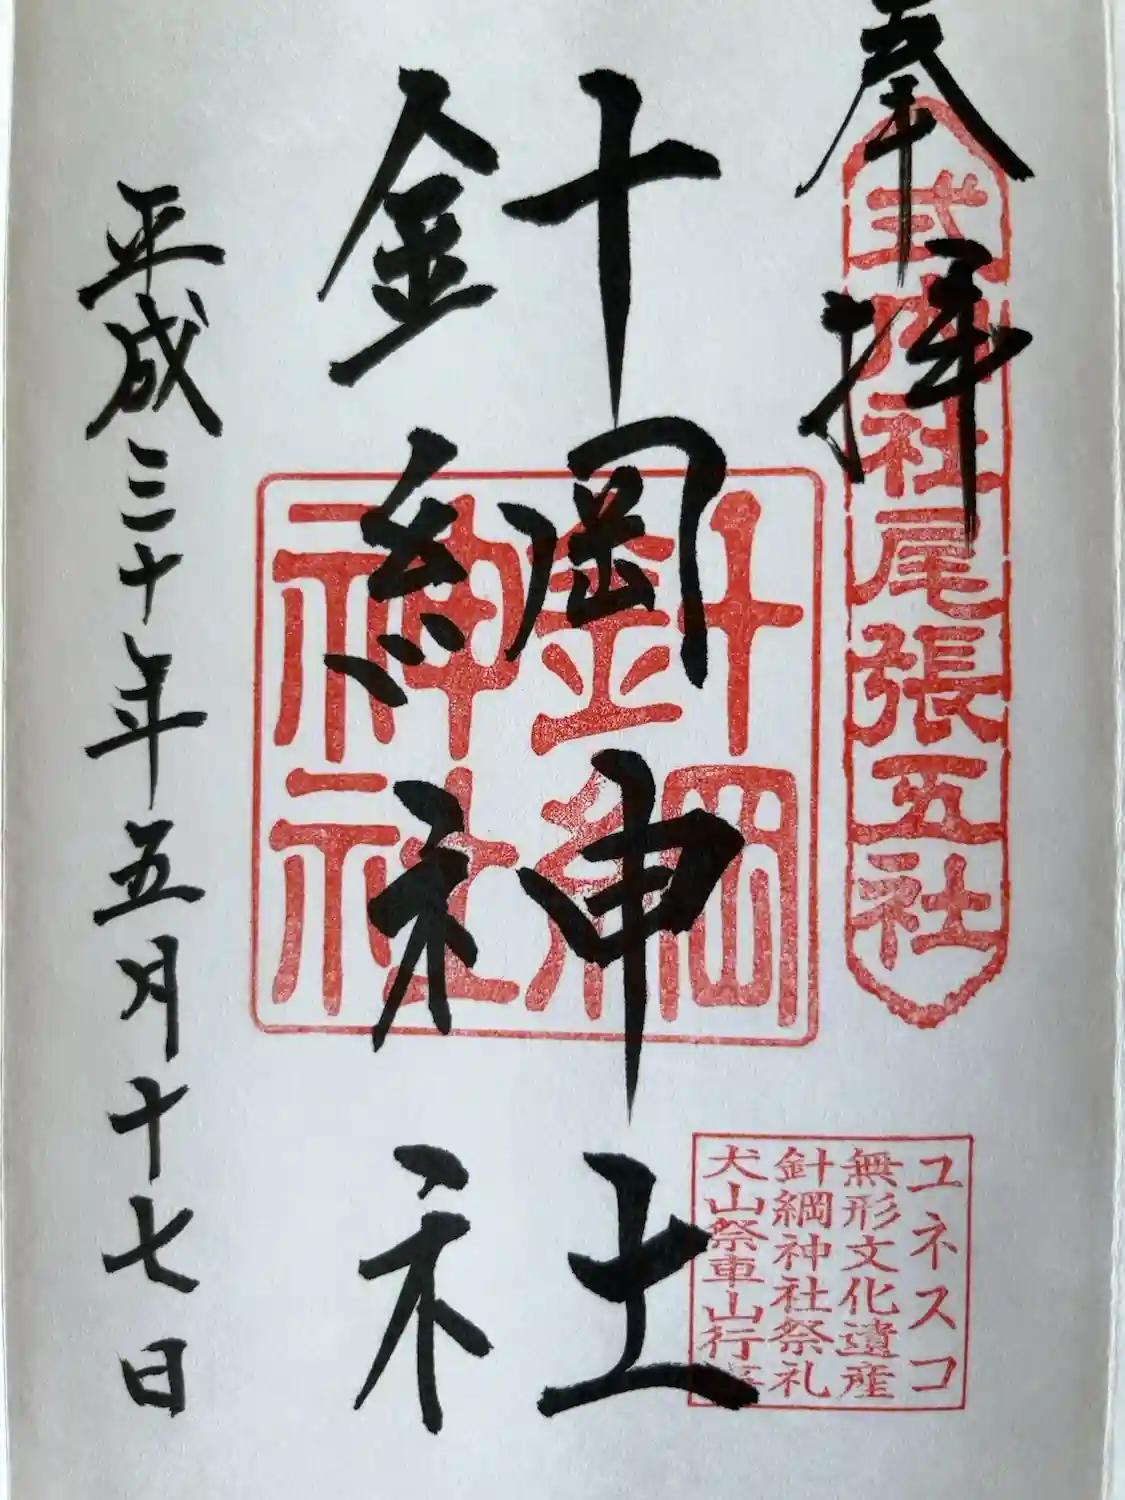 奉拝
式内社尾張五社
針綱神社
針綱
神社
ユネスコ
無形文化遺産
針綱神社祭礼
犬山祭車山行事
平成三十年五月十七日